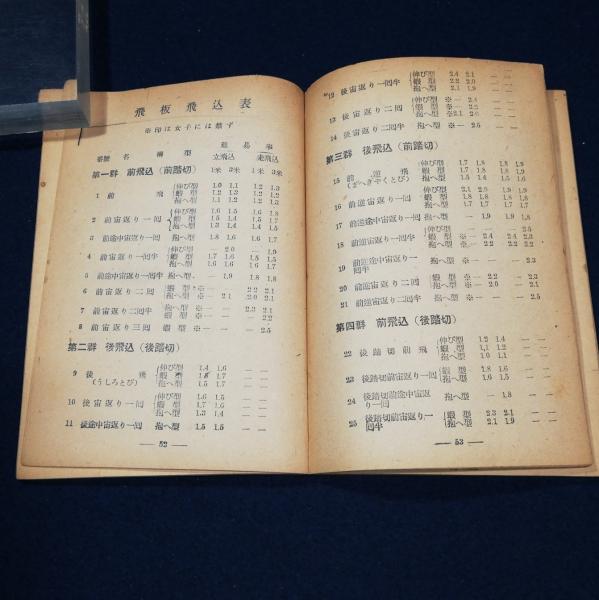 飛板飛込表
※印は女子には禁ず
難易率
番號 名稱 型 立飛込 走飛込
1米 3米 1米 3米
第一群 前飛込 (前踏切)
1 前飛 伸び型 1.0 1.1 1.2 1.3
蝦型 1.1 1.2 1.2 1.3
抱へ型 1.1 1.2 1.2 1.3
2 前宙返り一囘 伸び型 1.6 1.5 1.6 1.8
蝦型 1.5 1.4 1.5 1.7
抱へ型 1.3 1.4 1.4 1.5
3 前途中宙返り一囘 抱へ型 1.8 1.6 1.6 1.7
4 前宙返り一囘半 伸び型 — 2.0 — 1.9
蝦型 1.7 1.6 1.5 1.5
抱へ型 1.6 1.5 1.4 1.5
5 前途中宙返り一囘半 抱へ型 — 1.9 1.8 1.8
6 前宙返り二囘 蝦型 ※— — 2.2 2.1
抱へ型 ※— 2.1 2.0 2.1
7 前宙返り二囘半 蝦型 ※— — 2.3 2.2
抱へ型 ※— — 2.2 2.1
8 前宙返り三囘 蝦型 ※— — — 2.5
第二群 後飛込 (後踏切)
9 後飛 伸び型 1.4 1.6 — —
(うしろとび) 蝦型 1.6 1.7 — —
抱へ型 1.5 1.7 — —
10 後宙返り一囘 伸び型 1.6 1.5 — —
蝦型 1.7 1.6 — —
抱へ型 1.3 1.4 — —
11 後途中宙返り一囘 抱へ型 1.5 1.5 — —
— 52 —
12 後宙返り一囘半 伸び型 2.4 2.1 — —
蝦型 2.2 2.0 — —
抱へ型 2.1 1.9 — —
13 後宙返り二囘 伸び型 ※— 2.4 — —
蝦型 ※— 2.2 — —
抱へ型 ※— 2.0 — —
14 後宙返り二囘半 抱へ型 ※— 2.5 — —
第三群 後飛込 (前踏切)
15 前逆飛 伸び型 1.7 1.8 1.8 1.9
(ぜんぎやくとび) 蝦型 1.6 1.7 1.7 1.8
抱へ型 1.5 1.4 1.5 1.6
16 前逆宙返り一囘 伸び型 2.1 2.0 1.9 1.9
蝦型 1.8 1.7 1.8 1.8
抱へ型 1.7 1.7 1.7 1.7
17 前逆途中宙返り一囘 抱へ型 — 1.9 1.9 1.8
18 前逆宙返り一囘半 伸び型 — — — 2.5
蝦型 ※— 2.4 2.4 2.3
抱へ型 ※— 2.2 2.2 2.2
19 前逆途中宙返り一囘半 抱へ型 — — — 2.3
20 前逆宙返り二囘 蝦型 ※— 2.2 — 2.3
抱へ型 ※— 2.0 — 2.1
21 前逆宙返り二囘半 抱へ型 ※— — — 2.5
第四群 前飛込 (後踏切)
22 後踏切前飛 伸び型 1.2 1.4 — —
蝦型 1.1 1.2 — —
抱へ型 1.0 1.1 — —
23 後踏切前宙返り一囘 伸び型 — — — —
蝦型 1.8 1.6 — —
抱へ型 1.6 1.5 — —
24 後踏切前途中宙返り一囘 抱へ型 — 1.8 — —
25 後踏切前宙返り一囘半 蝦型 2.3 2.1 — —
抱へ型 2.1 1.9 — —
— 53 —